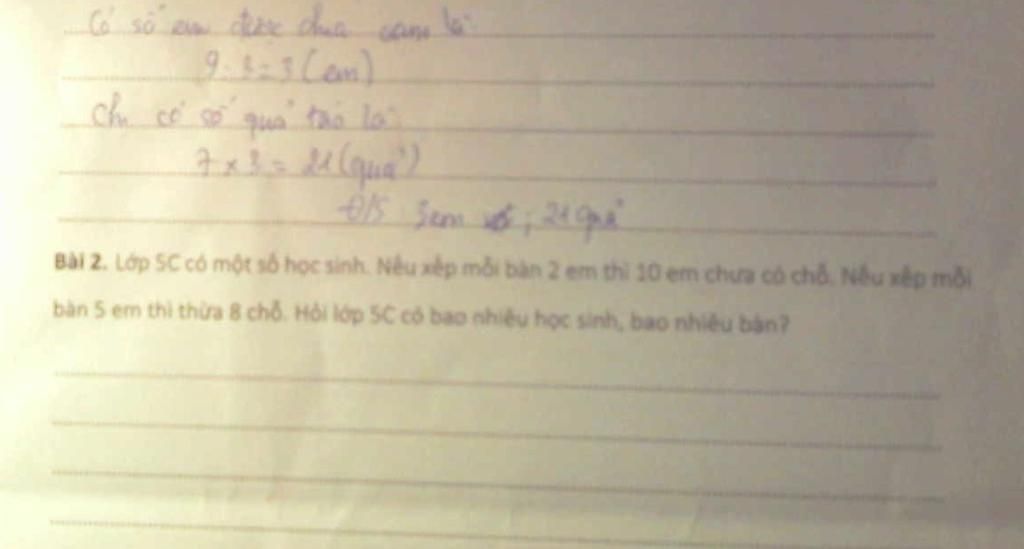 Có số em được chia cam là:
9 : 3 = 3 (em)
Chị có số quả táo là:
7 x 3 = 21 (quả)
Đ/S 3em ; 21 quả
Bài 2. Lớp 5C có một số học sinh. Nếu xếp mỗi bàn 2 em thì 10 em chưa có chỗ. Nếu xếp mỗi
bàn 5 em thì thừa 8 chỗ. Hỏi lớp 5C có bao nhiêu học sinh, bao nhiêu bàn?